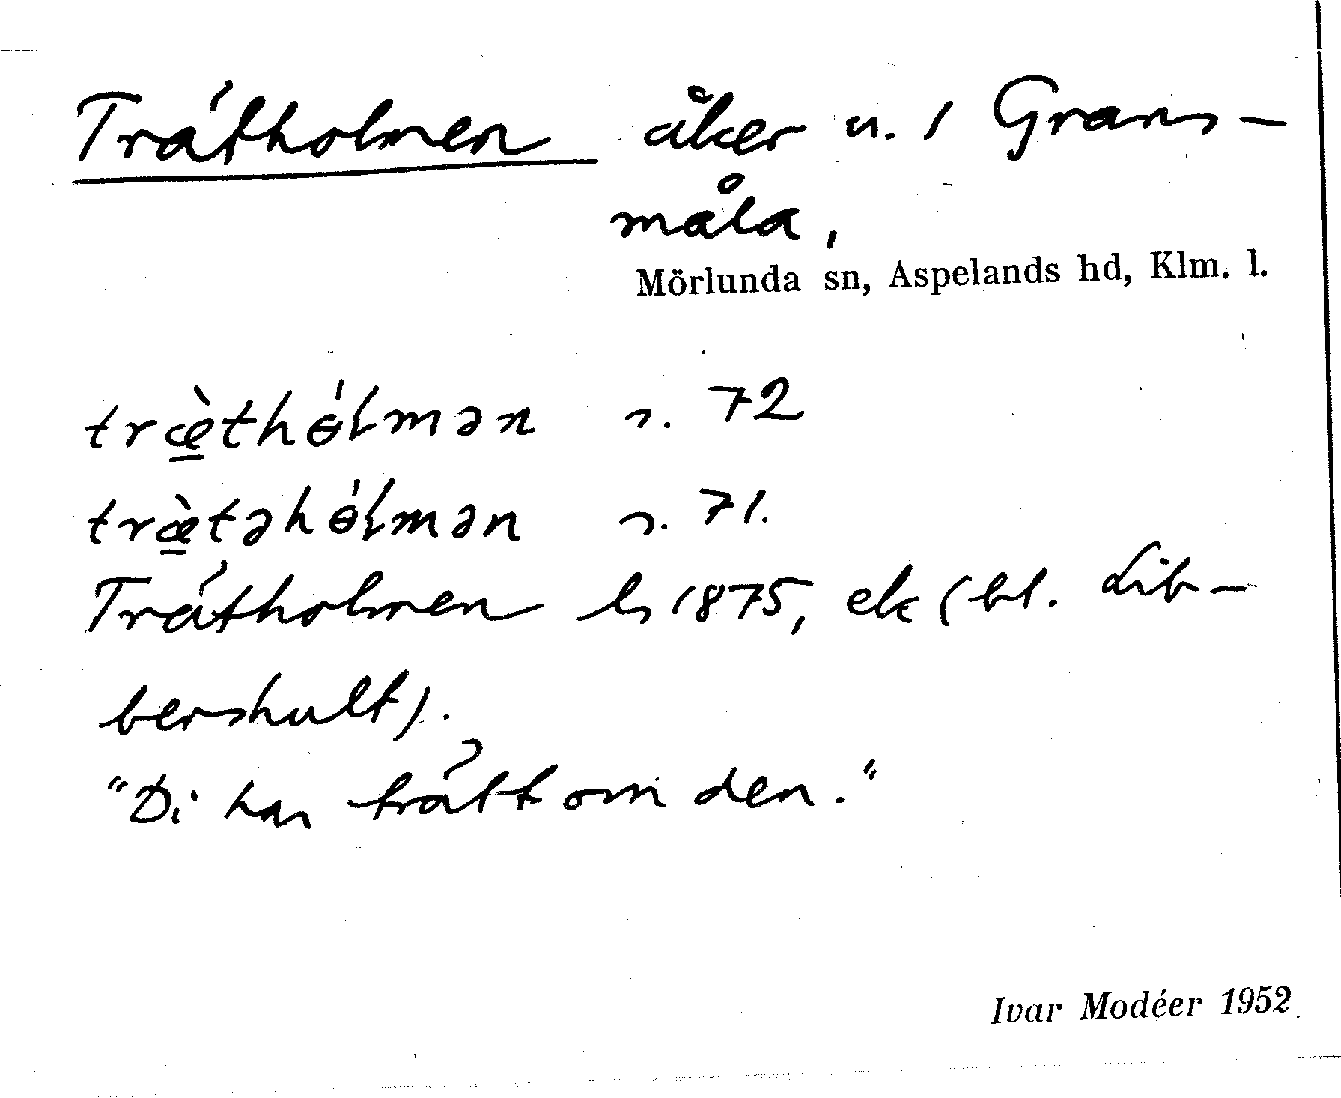 Trätholmen åker u. 1 Grans-
måla,
Mörlunda sn, Aspelands hd, Klm. l.
træ̀thɵ́lmən s. 72
træ̀təhɵ́lmən s. 71.
Trätholmen ls 1875, ek (bl. Lib-
bershult).
"Di har trätt om den."
Ivar Modéer 1952